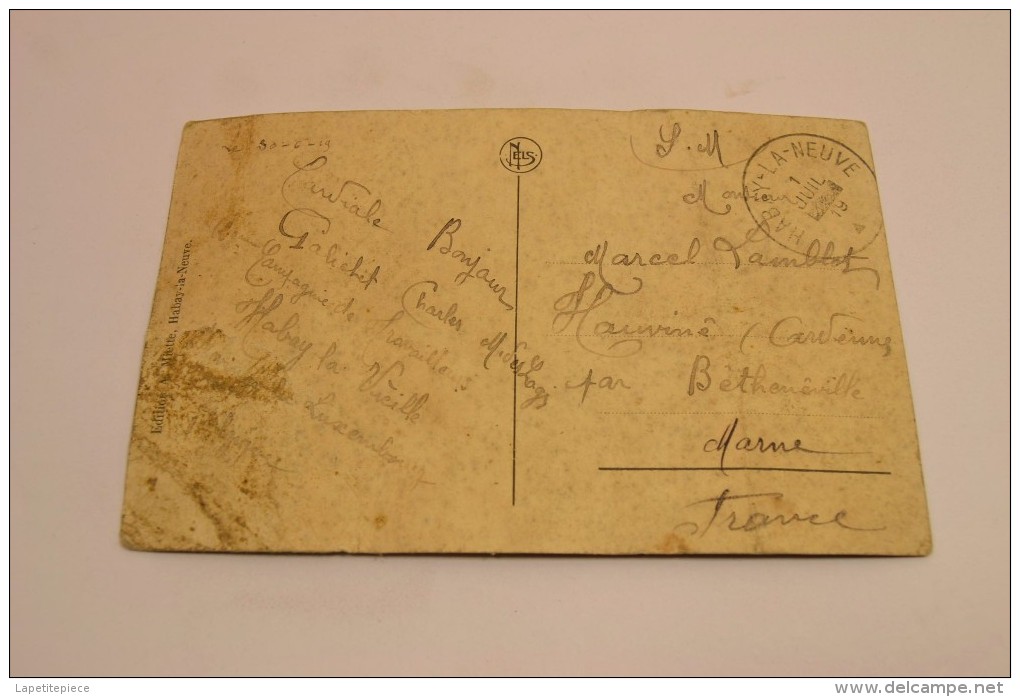 le 30-6-19
Cordiale Bonjour
Galichet Charles M. des Logs
Compagnie de Travailleurs
Habay la Vieille
Luxembourg
Edition A. Miette, Habay-la-Neuve.
NELS
S.M
HABAY-LA-NEUVE
1
JUIL
19
Monsieur
Marcel Lamblot
Hauviné (Ardennes
par Bétheneville
Marne
France
Lapetitepiece
delcampe.net